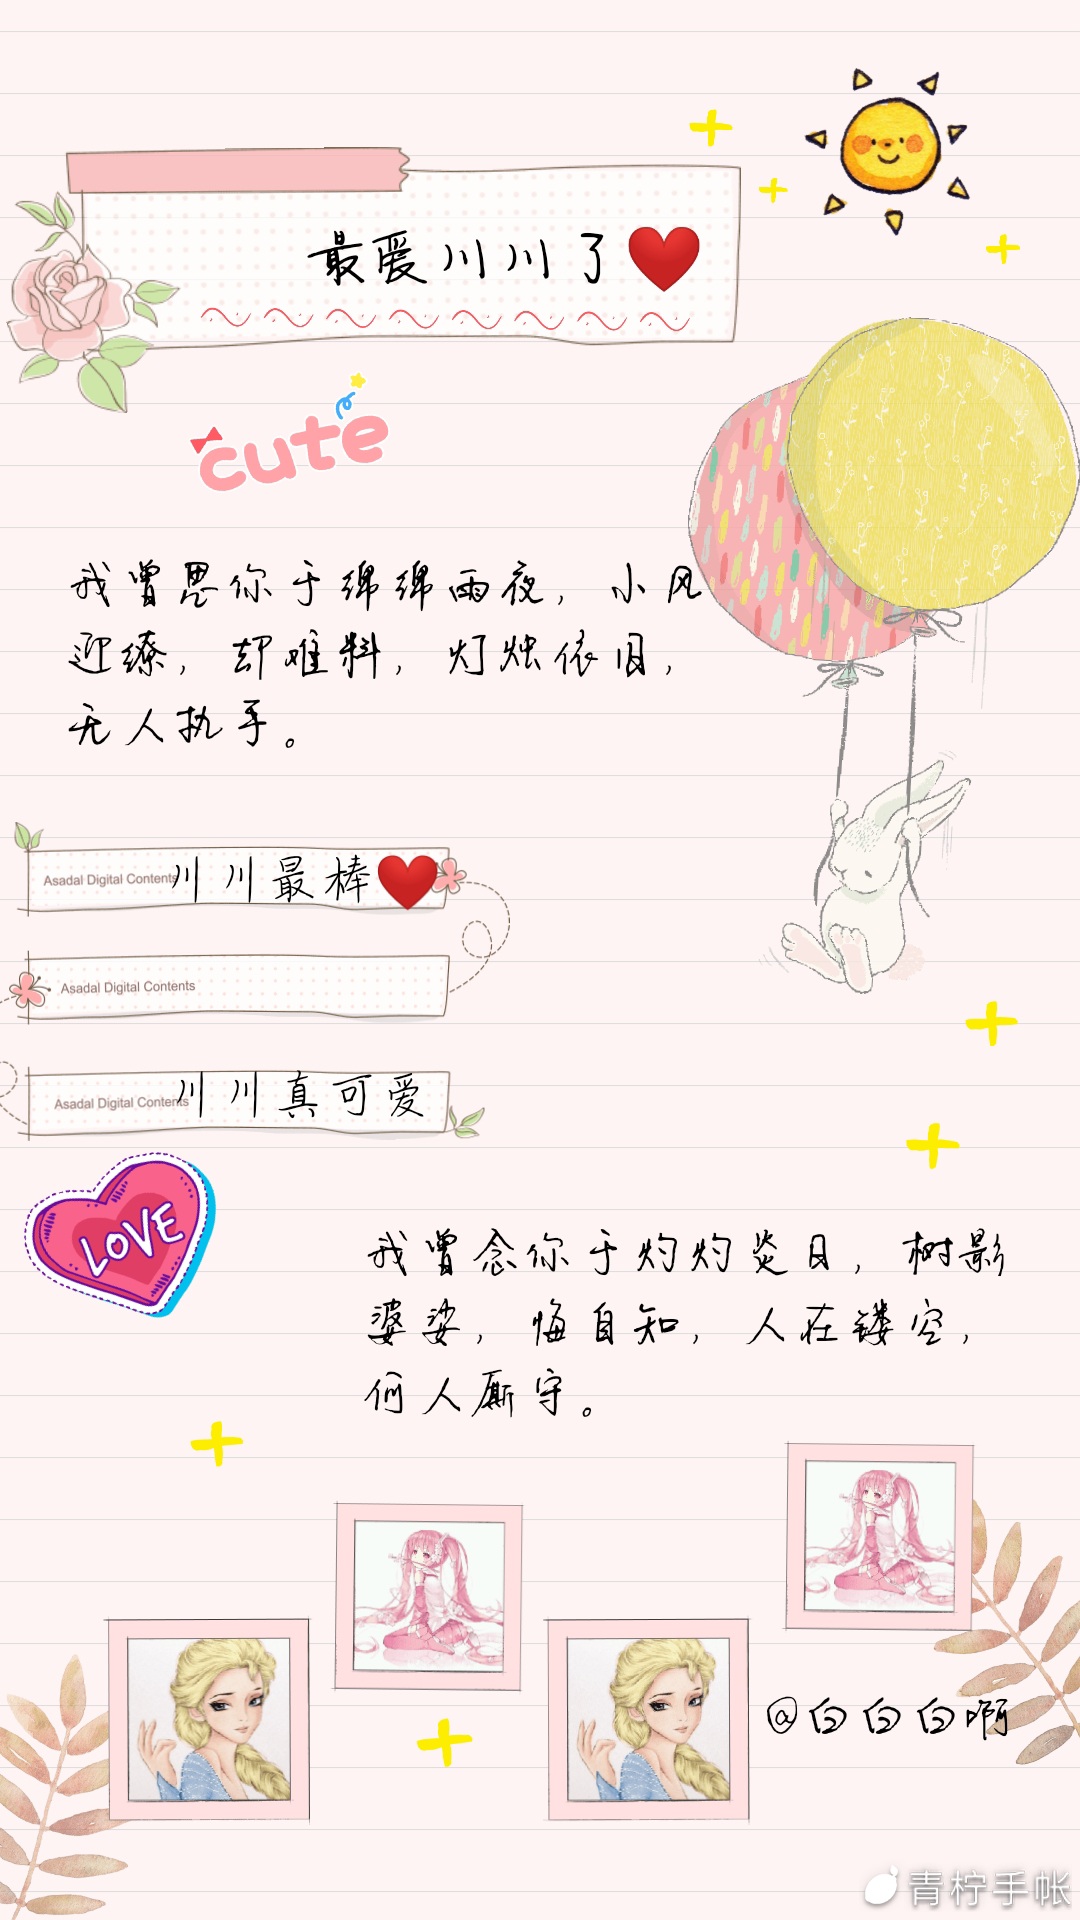 最爱川川了❤️
cute
我曾思你于绵绵雨夜，小风
迎缭，却难料，灯烛依旧，
无人执手。
Asadal Digital Contents
川川最棒❤️
Asadal Digital Contents
Asadal Digital Contents
川川真可爱
LOVE
我曾念你于灼灼炎日，树影
婆娑，悔自知，人在镂空，
何人厮守。
@白白白啊
青柠手帐